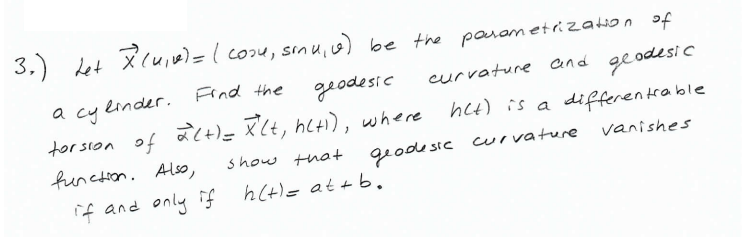 3.) Let X⃗(u,v)=(cosu, sinu, v) be the parametrization of
a cylinder. Find the geodesic curvature and geodesic
torsion of α⃗(t)= X⃗(t, h(t)), where h(t) is a differentiable
function. Also, show that geodesic curvature vanishes
if and only if h(t)= at+b.